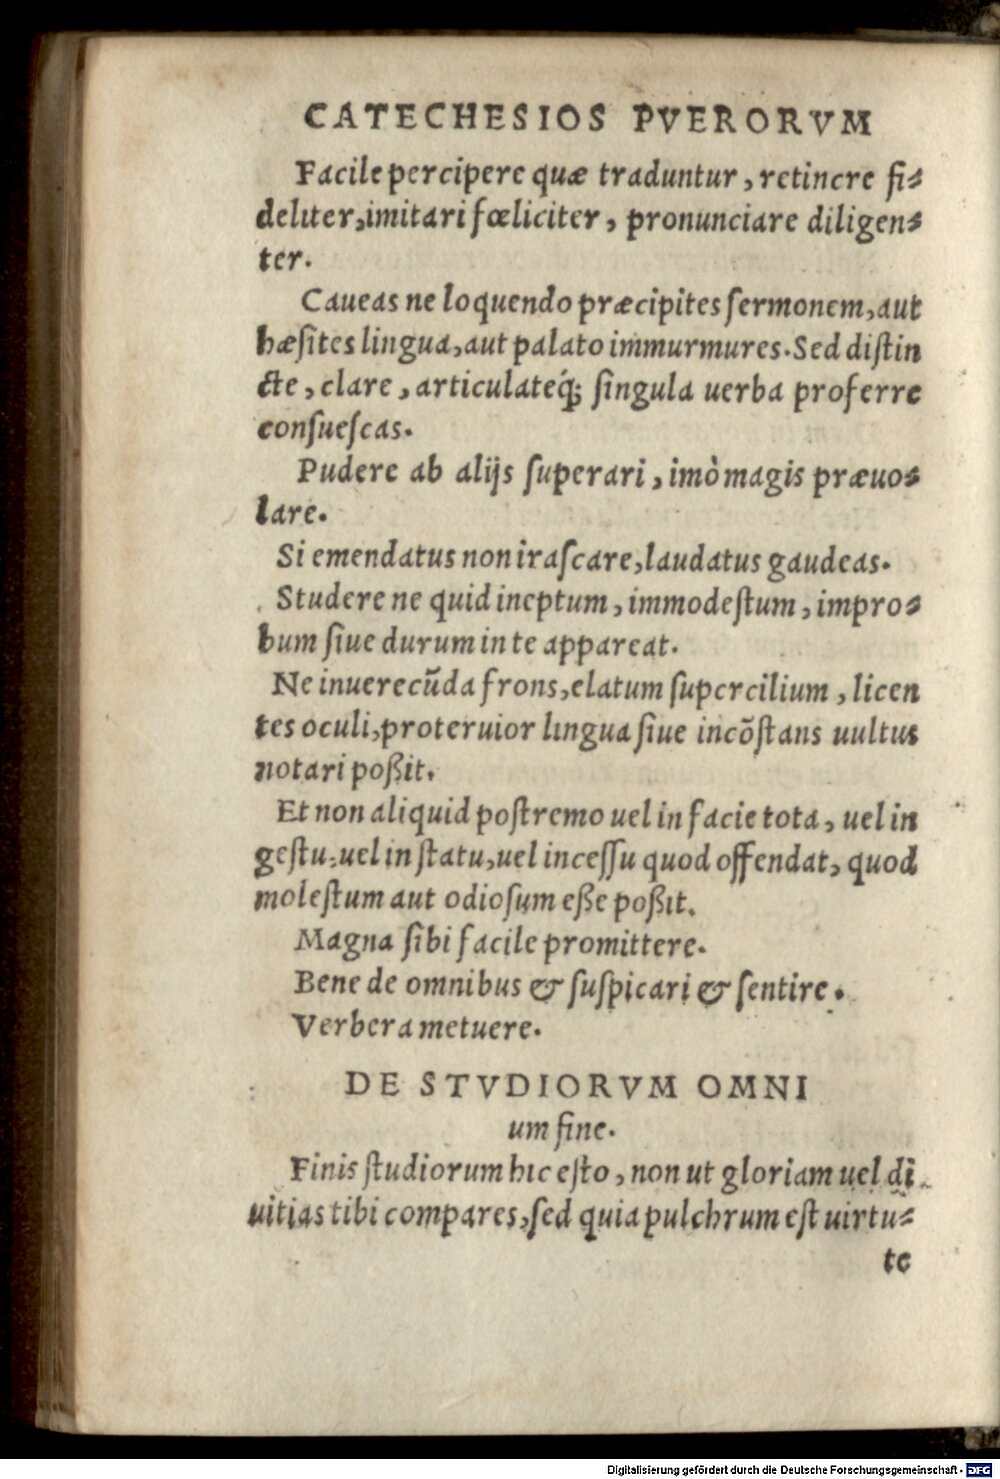 CATECHESIOS PVERORVM
Facile percipere quæ traduntur, retinere fi⸗
deliter, imitari fœliciter, pronunciare diligen⸗
ter.
Caueas ne loquendo præcipites ſermonem, aut
hæſites lingua, aut palato immurmures. Sed diſtin
cte, clare, articulateq́; ſingula uerba proferre
conſueſcas.
Pudere ab alijs ſuperari, imò magis præuo⸗
lare.
Si emendatus non iraſcare, laudatus gaudeas.
Studere ne quid ineptum, immodeſtum, impro⸗
bum ſiue durum in te appareat.
Ne inuerecũda frons, elatum ſupercilium, licen
tes oculi, proteruior lingua ſiue incõſtans uultus
notari poßit.
Et non aliquid poſtremo uel in facie tota, uel in
geſtu, uel in ſtatu, uel inceſſu quod offendat, quod
moleſtum aut odioſum eße poßit.
Magna ſibi facile promittere.
Bene de omnibus & ſuſpicari & ſentire.
Verbera metuere.
DE STVDIORVM OMNI
um fine.
Finis ſtudiorum hic eſto, non ut gloriam uel di
uitias tibi compares, ſed quia pulchrum eſt uirtu⸗
te
Digitalisierung gefördert durch die Deutsche Forschungsgemeinschaft - DFG